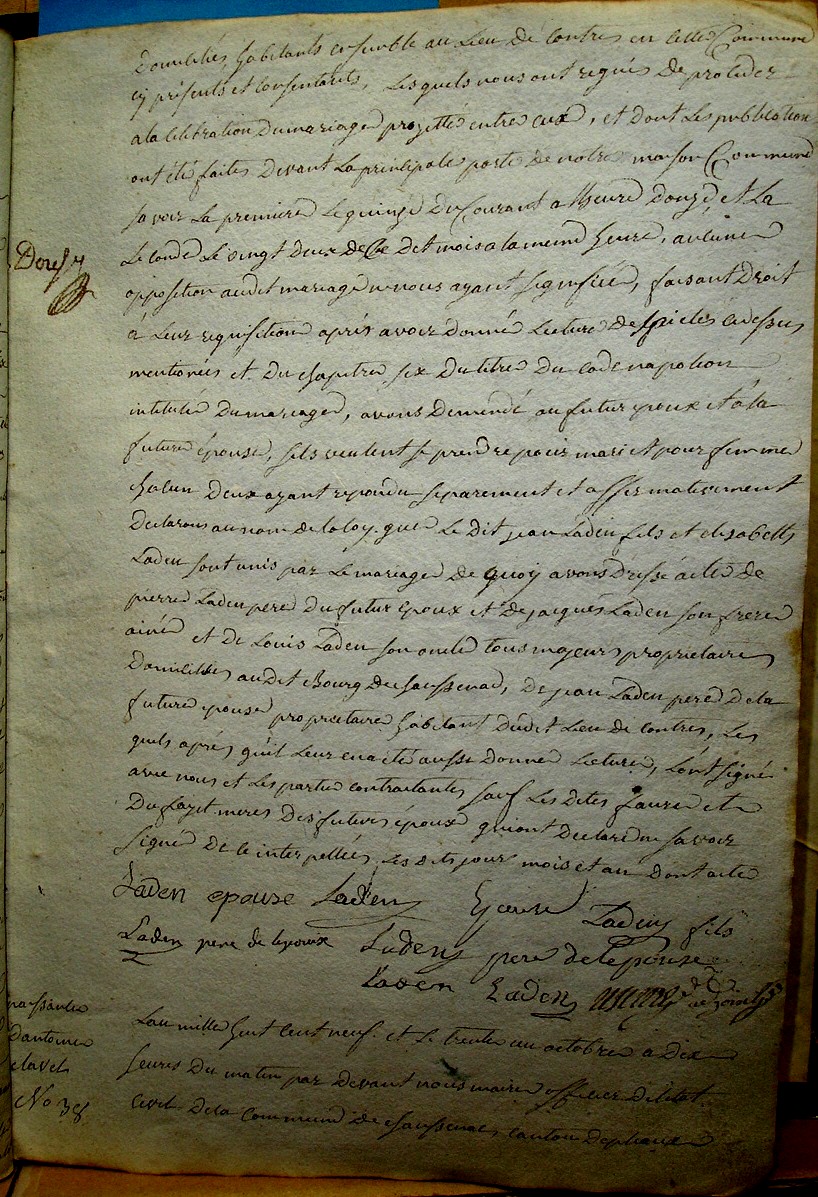 Domiciliés habitants ensemble au Lieu de Contres en cette Commune
cy présents et consentants, Lesquels nous ont requis De proceder
a la celebration Du mariage projetté entre eux, et Dont Les publications
ont été faites Devant La principale porte De notre maison Commune
savoir La premiere Le quinze Du Courant a Lheure Douze et La
seconde Le vingt deux de Ce Dit mois a la meme heure, aucune
opposition audit mariage ne nous ayant signifiée, faisant Droit
a Leur requisition aprés avoir Donné Lecture Des pieces cidessus
mentionées et Du chapitre six Du titre Du code napoleon
intitulé Du mariage, avons Demandé au futur epoux et à la
future épouse, sils veulent se prendre pour mari et pour femme
chacun Deux ayant repondu separement et affirmativement
Declarons au nom de la loy que Le Dit jean Laden fils et elisabeth
Laden sont unis par Le mariage De quoy avons Dressé acte De
pierre Laden pere Du futur epoux et De jacques Laden son frere
ainé et De Louis Laden son oncle tous majeurs proprietaires
Domiciliés audit Bourg De saussenac, De jean Laden pere De la
future epouse proprietaire habitant Dudit Lieu De Contres, Les
quels aprés quil Leur en a été aussi Donné Lecture, L'ont signé
avec nous et Les partie contractantes sauf Les Dites faure et
Du fayet meres Des futurs époux qui ont Declaré ne savoir
signé De ce interpellées, Les Dits jour mois et an Dont acte
Laden epouse Laden Laden fils
Laden pere de lepoux Laden pere de lepouse
Laden Laden
Dousy
naissance
Dantoine
clavel
No 38
Lan mille huit cent neuf et Le trente un octobre a Dix
heures Du matin par Devant nous maire officier De létat
civil De la Commune De saussenac, canton De